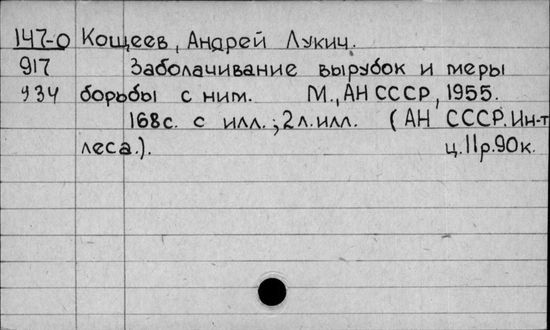 147-0 Кощеев, Андрей Лукич.
917 Заболачивание вырубок и меры
934 борьбы с ним. М., АН СССР, 1955.
168с. с илл.; 2л.илл. (АН СССР. Ин-т
леса.). ц.11р.90к.